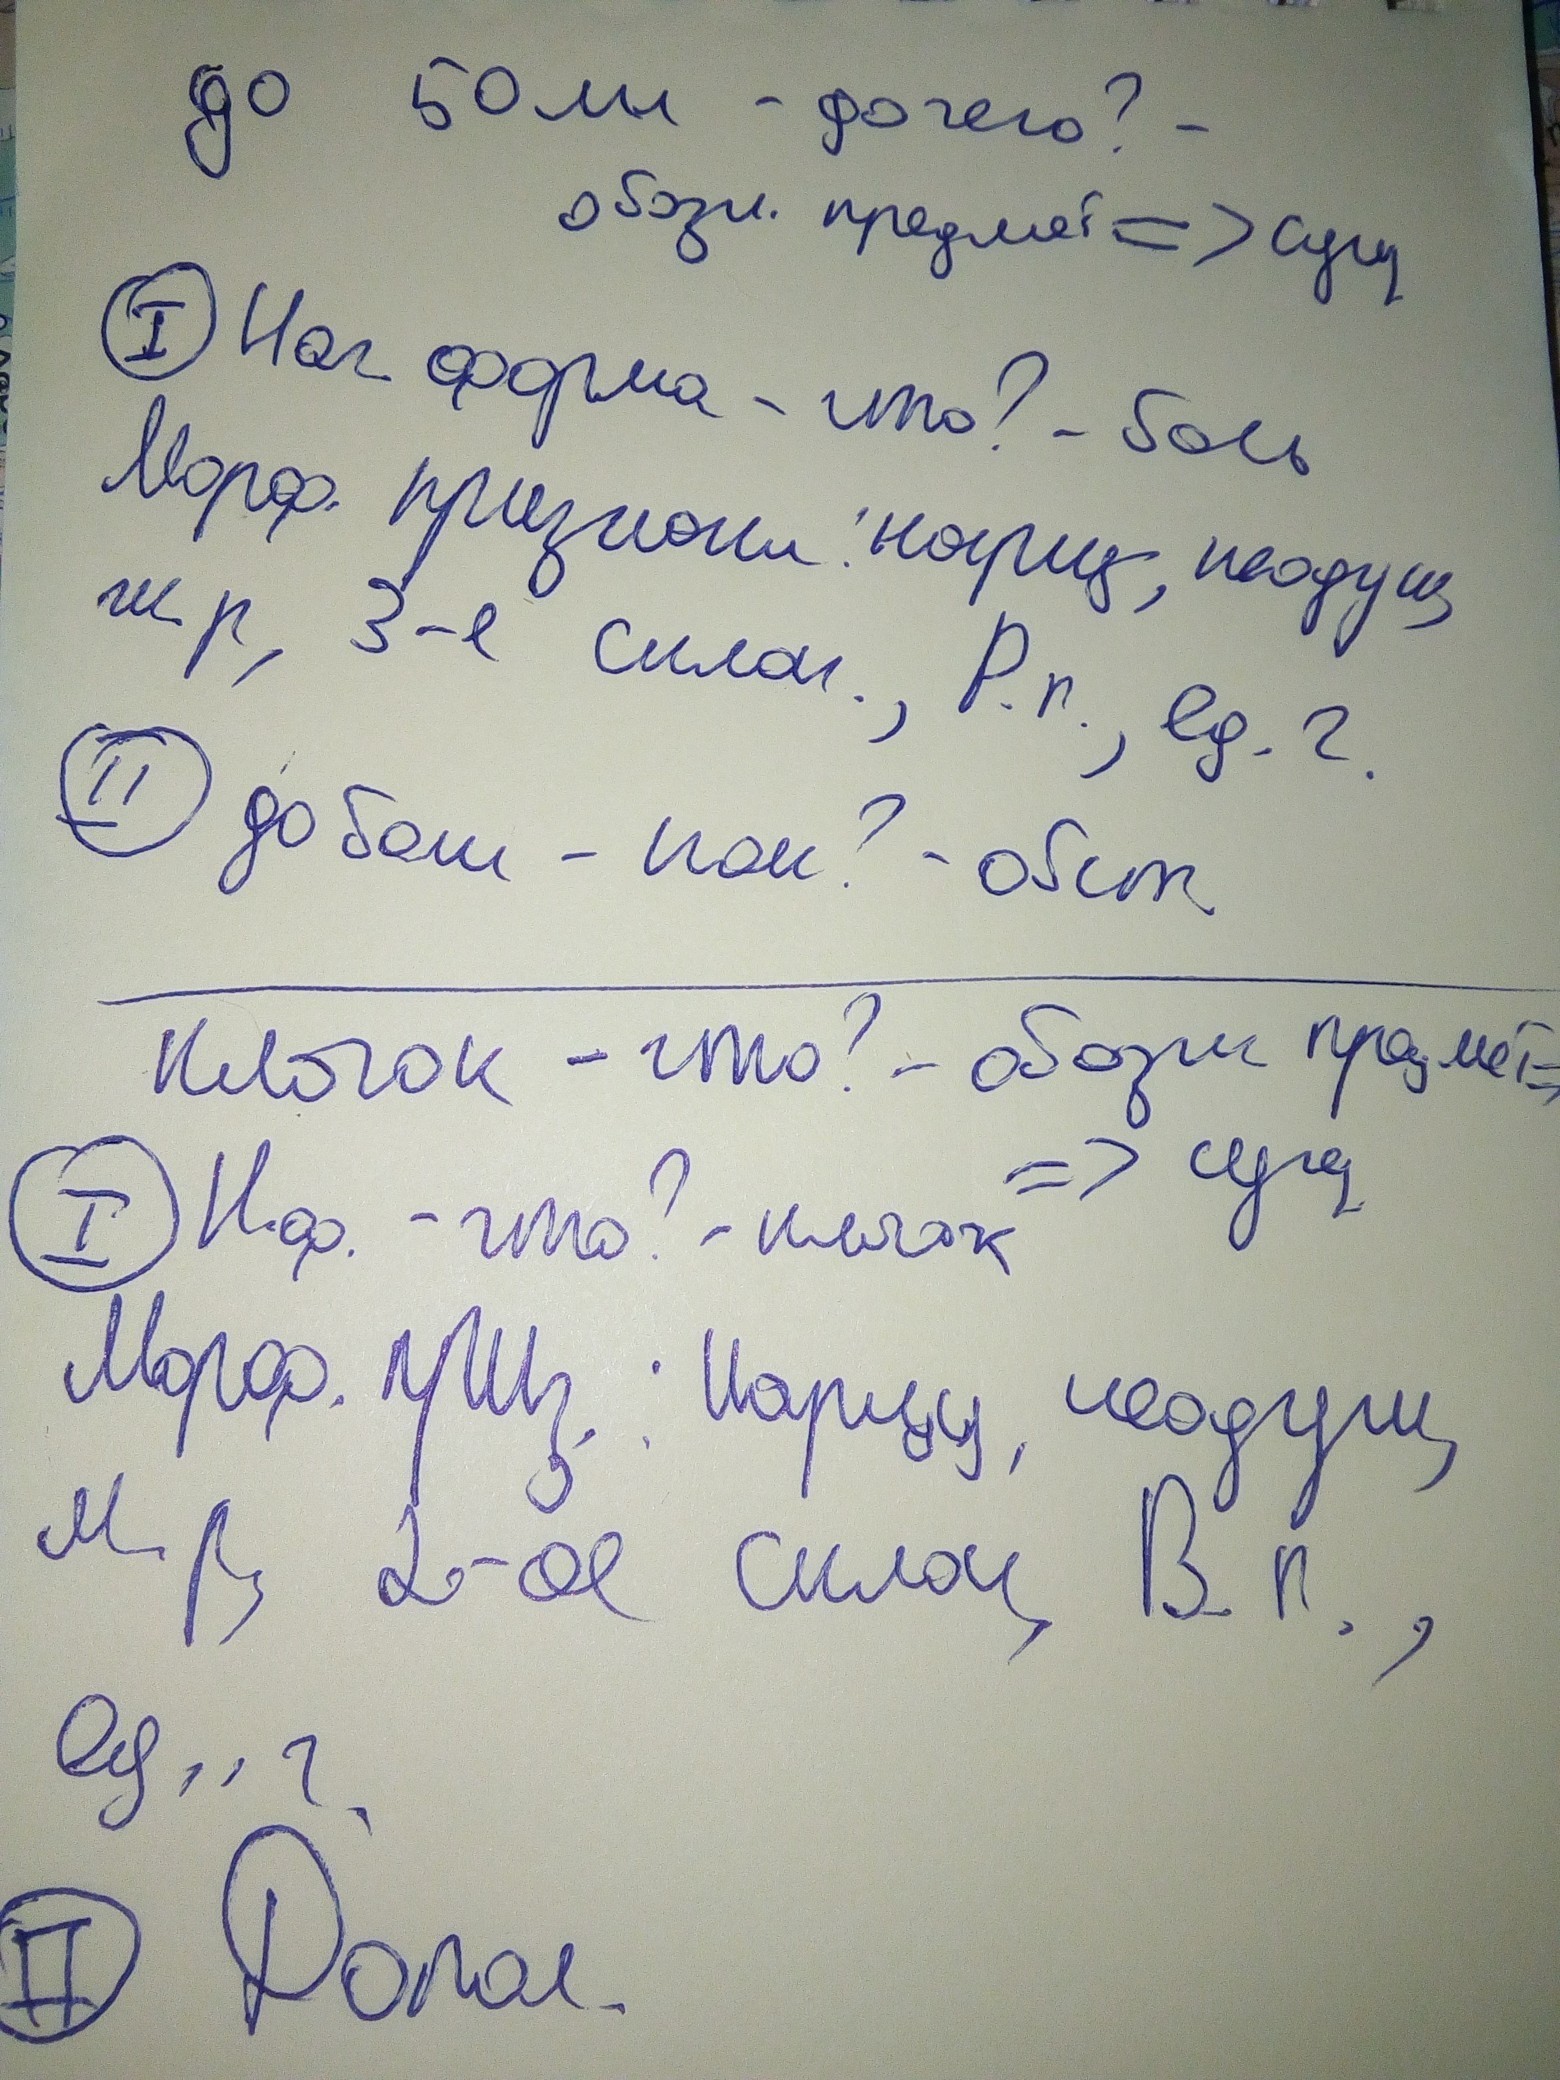 до боли - до чего? -
обозн. предмет => сущ
I Нач форма - что? - боль
Морф. признаки: нариц, неодуш,
ж р, 3-е склон., Р.п., ед. ч.
II до боли - как? - обст
клочок - что? - обозн предмет =>
=> сущ
I Н.ф. - что? - клочок
Морф. приз.: нариц, неодуш,
м. р, 2-ое склон, В. п.,
ед,, ч.
II Допол.